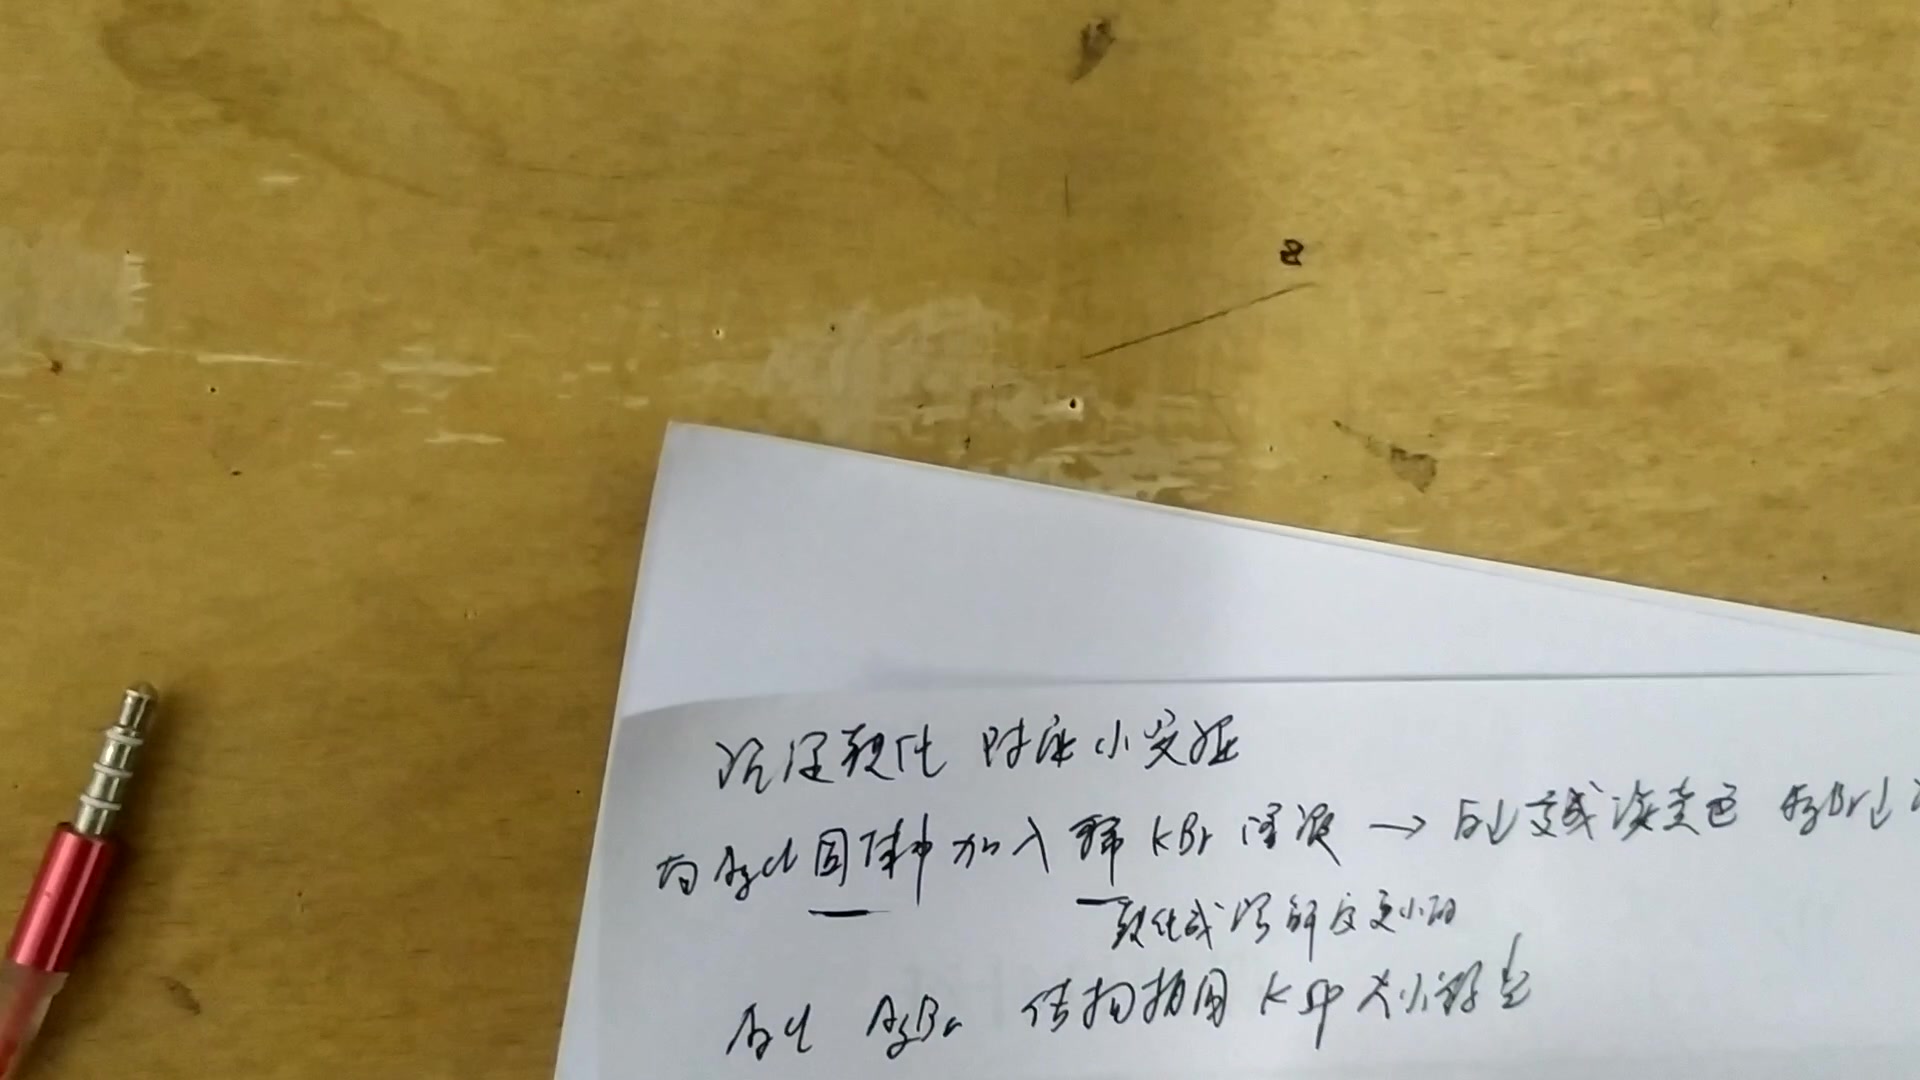 沉淀转化 时应小实验
向AgCl固体中加入稀KBr溶液 → 白↓变成淡黄色 AgBr↓
转化成溶解度更小的
AgCl AgBr 结构相同 Ksp大小